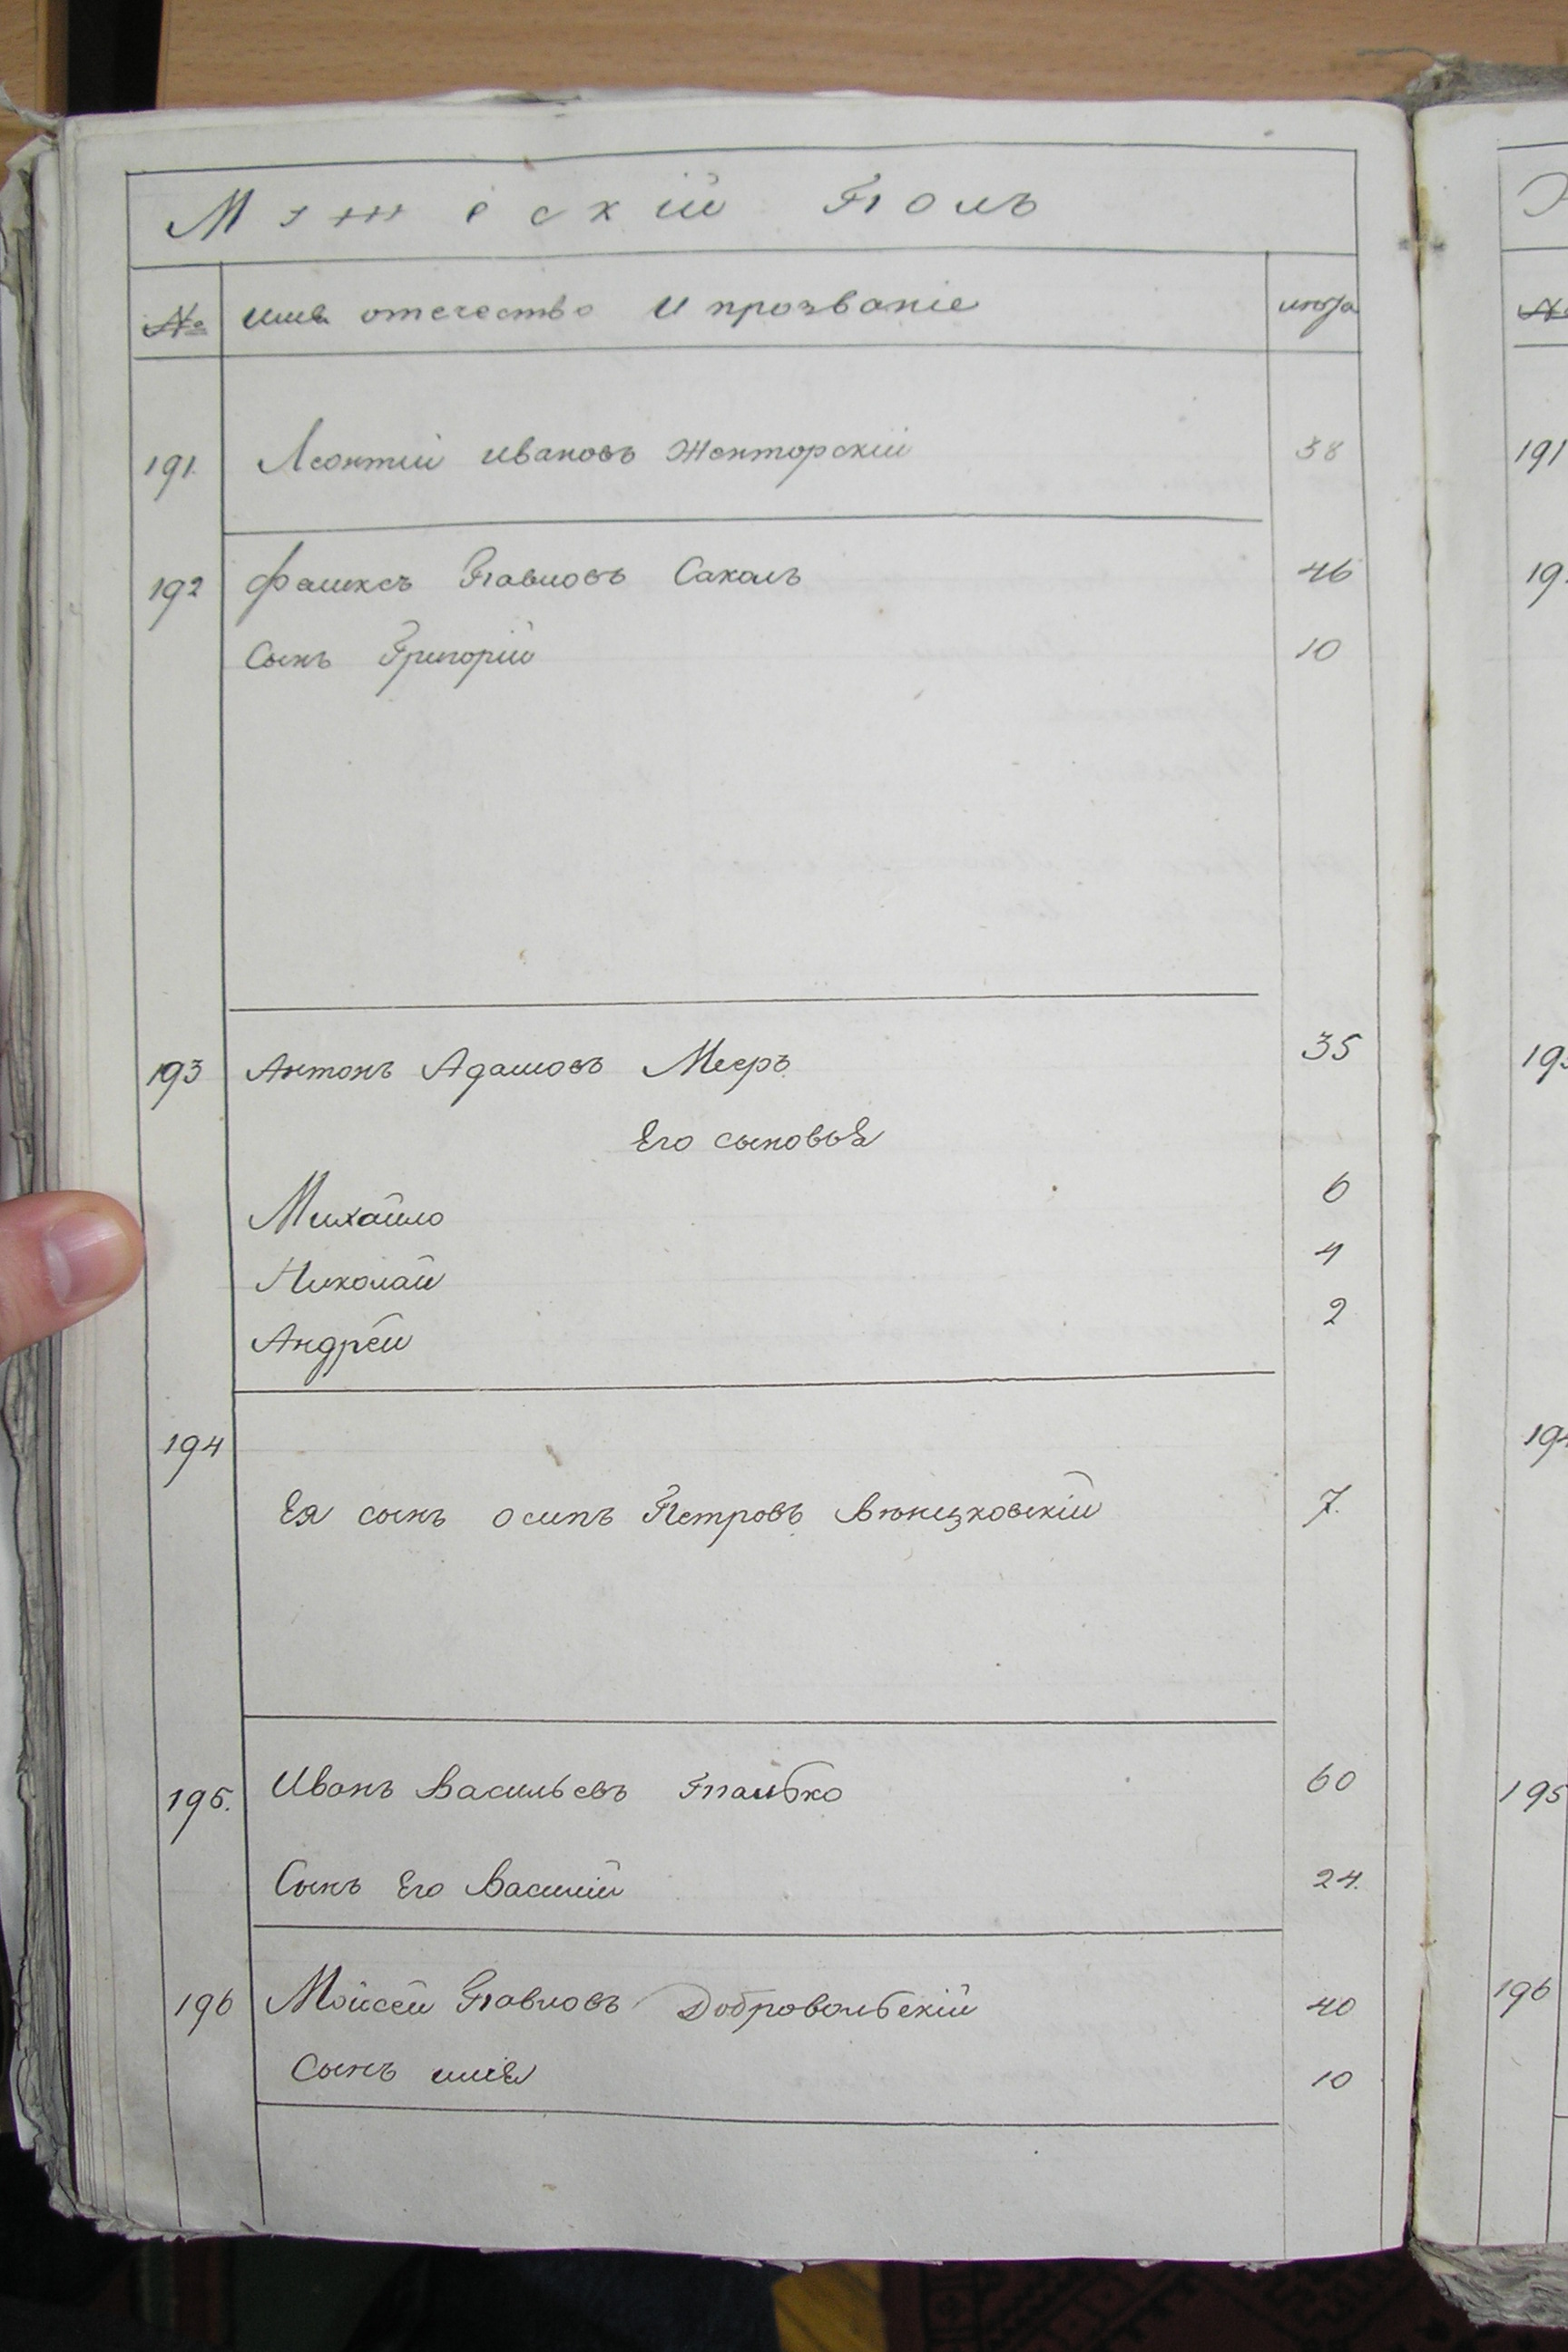 Мужескій Полъ
№ имя отечество и прозваніе лѣта
191. Леонтій Ивановъ Жонторскій 38
192 Феликсъ Павловъ Сакалъ 46
Сынъ Григорій 10
193 Антонъ Адамовъ Мееръ 35
Его сыновья
Михайло 6
Николай 4
Андрей 2
194
Ея сынъ осипъ Петровъ 7.
195. Иванъ Васильевъ 60
Сынъ Его Василій 24.
196 Моисей Павловъ Добровольскій 40
Сынъ Илія 10
191
19
193
194
195
196